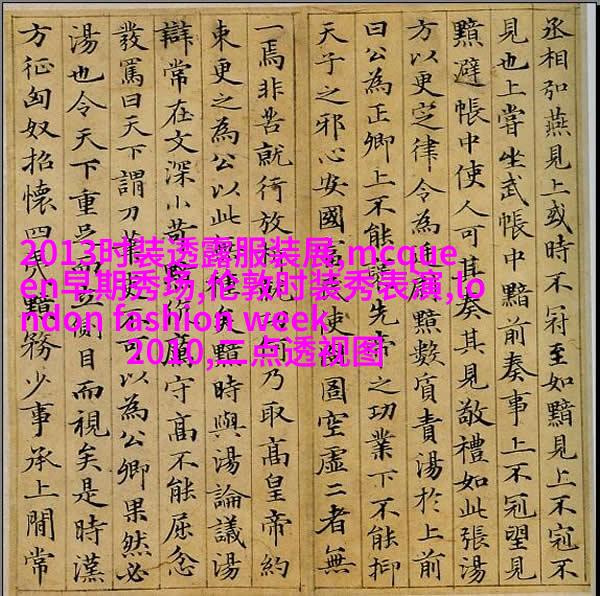 丞相弘燕見上或時不冠至如黯見上不冠不
見也上嘗坐武帳中黯前奏事上不冠望見
黯避帳中使人可其奏其見敬禮如此張湯
方以更定律令為廷尉黯數質責湯於上前
曰公為正卿上不能先帝之功業下不能抑
天子之邪心安國富民使囹圄空虛二者無
一焉非苦就行放乃取高皇帝約
束更之為公以此矣黯時與湯論議湯
辯常在文深小苛黯伉厲守高不能屈忿
發罵曰天下謂刀筆不可以為公卿果然必
湯也令天下重足而立側目而視矣是時漢
方征匈奴招懷四夷黯務少事承上閒常
2013时装透露服装展,mcque
en早期秀场,伦敦时装秀表演,lo
ndon fashion week
2010,二点透视图